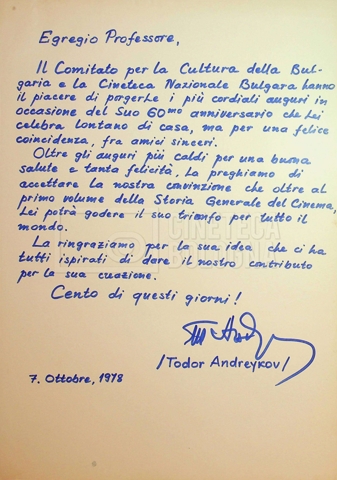 Egregio Professore,
Il Comitato per la Cultura della Bul-
garia e la Cineteca Nazionale Bulgara hanno
il piacere di porgerLe i più cordiali auguri in
occasione del Suo 60mo anniversario che Lei
celebra lontano di casa, ma per una felice
coincidenza, fra amici sinceri.
Oltre gli auguri più caldi per una buona
salute e tanta felicità, La preghiamo di
accettare la nostra convinzione che oltre al
primo volume della Storia Generale del Cinema,
Lei potrà godere il suo trionfo per tutto il
mondo.
La ringraziamo per la sua idea che ci ha
tutti ispirati di dare il nostro contributo
per la sua creazione.
Cento di questi giorni!
/Todor Andreykov/
7. Ottobre, 1978
CINETECA
BOLOGNA